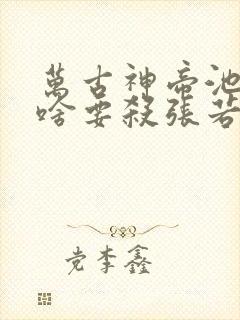 萬古神帝池
啥要殺張若
党李鑫